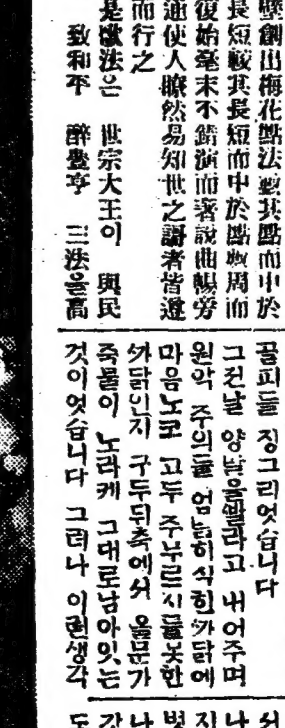 壁創出梅花點法數其點而中於
長短較其長短而中於點數周而
復始毫末不錯演而著說曲暢旁
通使人瞭然易知世之謌者皆遵
而行之
是歌法은 世宗大王이 與民
致和平 醉豊亨 三法을高
꼴피를 징그리엇습니다
그전날 양말을빨라고 내어주며
원악 주의를 엄늠히 식힌ᄭᅡ닭에
마음노코 고두 주부르시를못한
ᄭᅡ닭인지 구두뒤축에서 올문가
죽물이 노라케 그대로남아잇는
것이엇습니다 그러나 이런생각